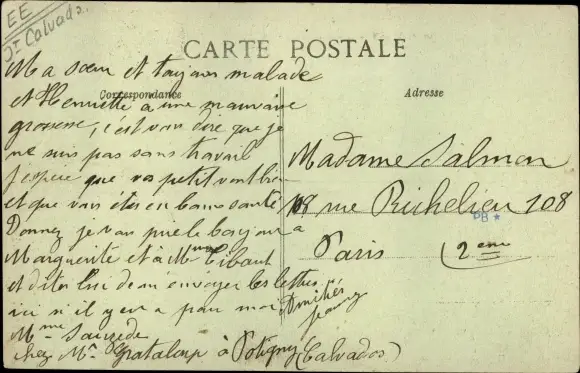 EE
Jr Calvados.
CARTE POSTALE
Correspondance
Adresse
Ma sœur et toujour malade
et Henriette a une mauvaise
grossesse, c'est vous dire que je
ne suis pas sans travail
J'espere que vos petit vont bien
et que vous êtes en bonne santé
Donnez je vous prie le bonjour a
Marguerite et à Mme Tibaut
et dites lui de m'envoyer les lettres
ici si il y en a pour moi
Amitiés
Jeanny
Mme Sauzède
chez Mr Grataloup à Potigny (Calvados)
Madame Salmon
108 rue Richelieu 108
PB *
Paris (2eme